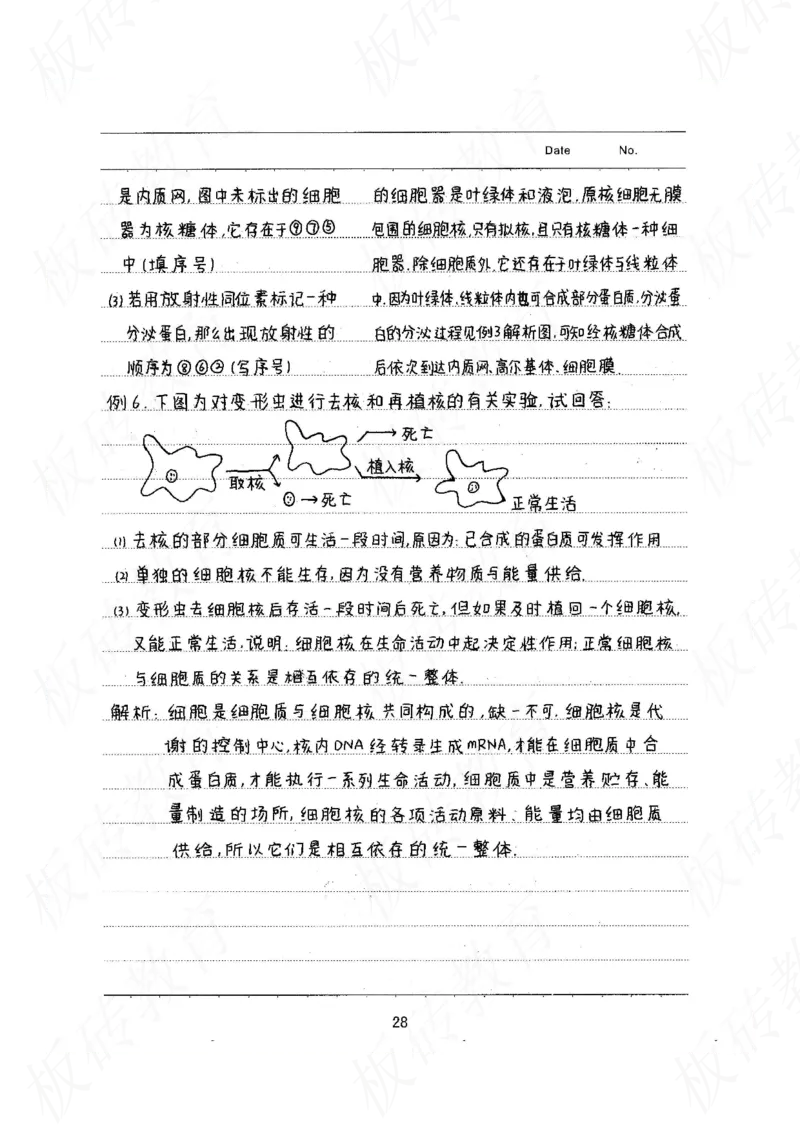 Date No.
是内质网,图中未标出的细胞
器为核糖体,它存在于⑨⑦⑤
中(填序号)
(3)若用放射性同位素标记一种
分泌蛋白,那么出现放射性的
顺序为⑧⑥②(写序号)
的细胞器是叶绿体和液泡,原核细胞无膜
包围的细胞核,只有拟核,且只有核糖体一种细
胞器.除细胞质外,它还存在于叶绿体与线粒体
中,因为叶绿体、线粒体内也可合成部分蛋白质,分泌蛋
白的分泌过程见例3解析图,可知经核糖体合成
后依次到达内质网、高尔基体、细胞膜.
例6.下图为对变形虫进行去核和再植核的有关实验,试回答:
死亡
取核
死亡
植入核
正常生活
(1)去核的部分细胞质可生活一段时间,原因为:已合成的蛋白质可发挥作用
(2)单独的细胞核不能生存,因为没有营养物质与能量供给.
(3)变形虫去细胞核后存活一段时间后死亡,但如果及时植回一个细胞核,
又能正常生活.说明:细胞核在生命活动中起决定性作用;正常细胞核
与细胞质的关系是相互依存的统一整体.
解析:细胞是细胞质与细胞核共同构成的,缺一不可.细胞核是代
谢的控制中心,核内DNA经转录生成mRNA,才能在细胞质中合
成蛋白质,才能执行一系列生命活动,细胞质中是营养贮存、能
量制造的场所,细胞核的各项活动原料、能量均由细胞质
供给,所以它们是相互依存的统一整体.
28
板砖教育